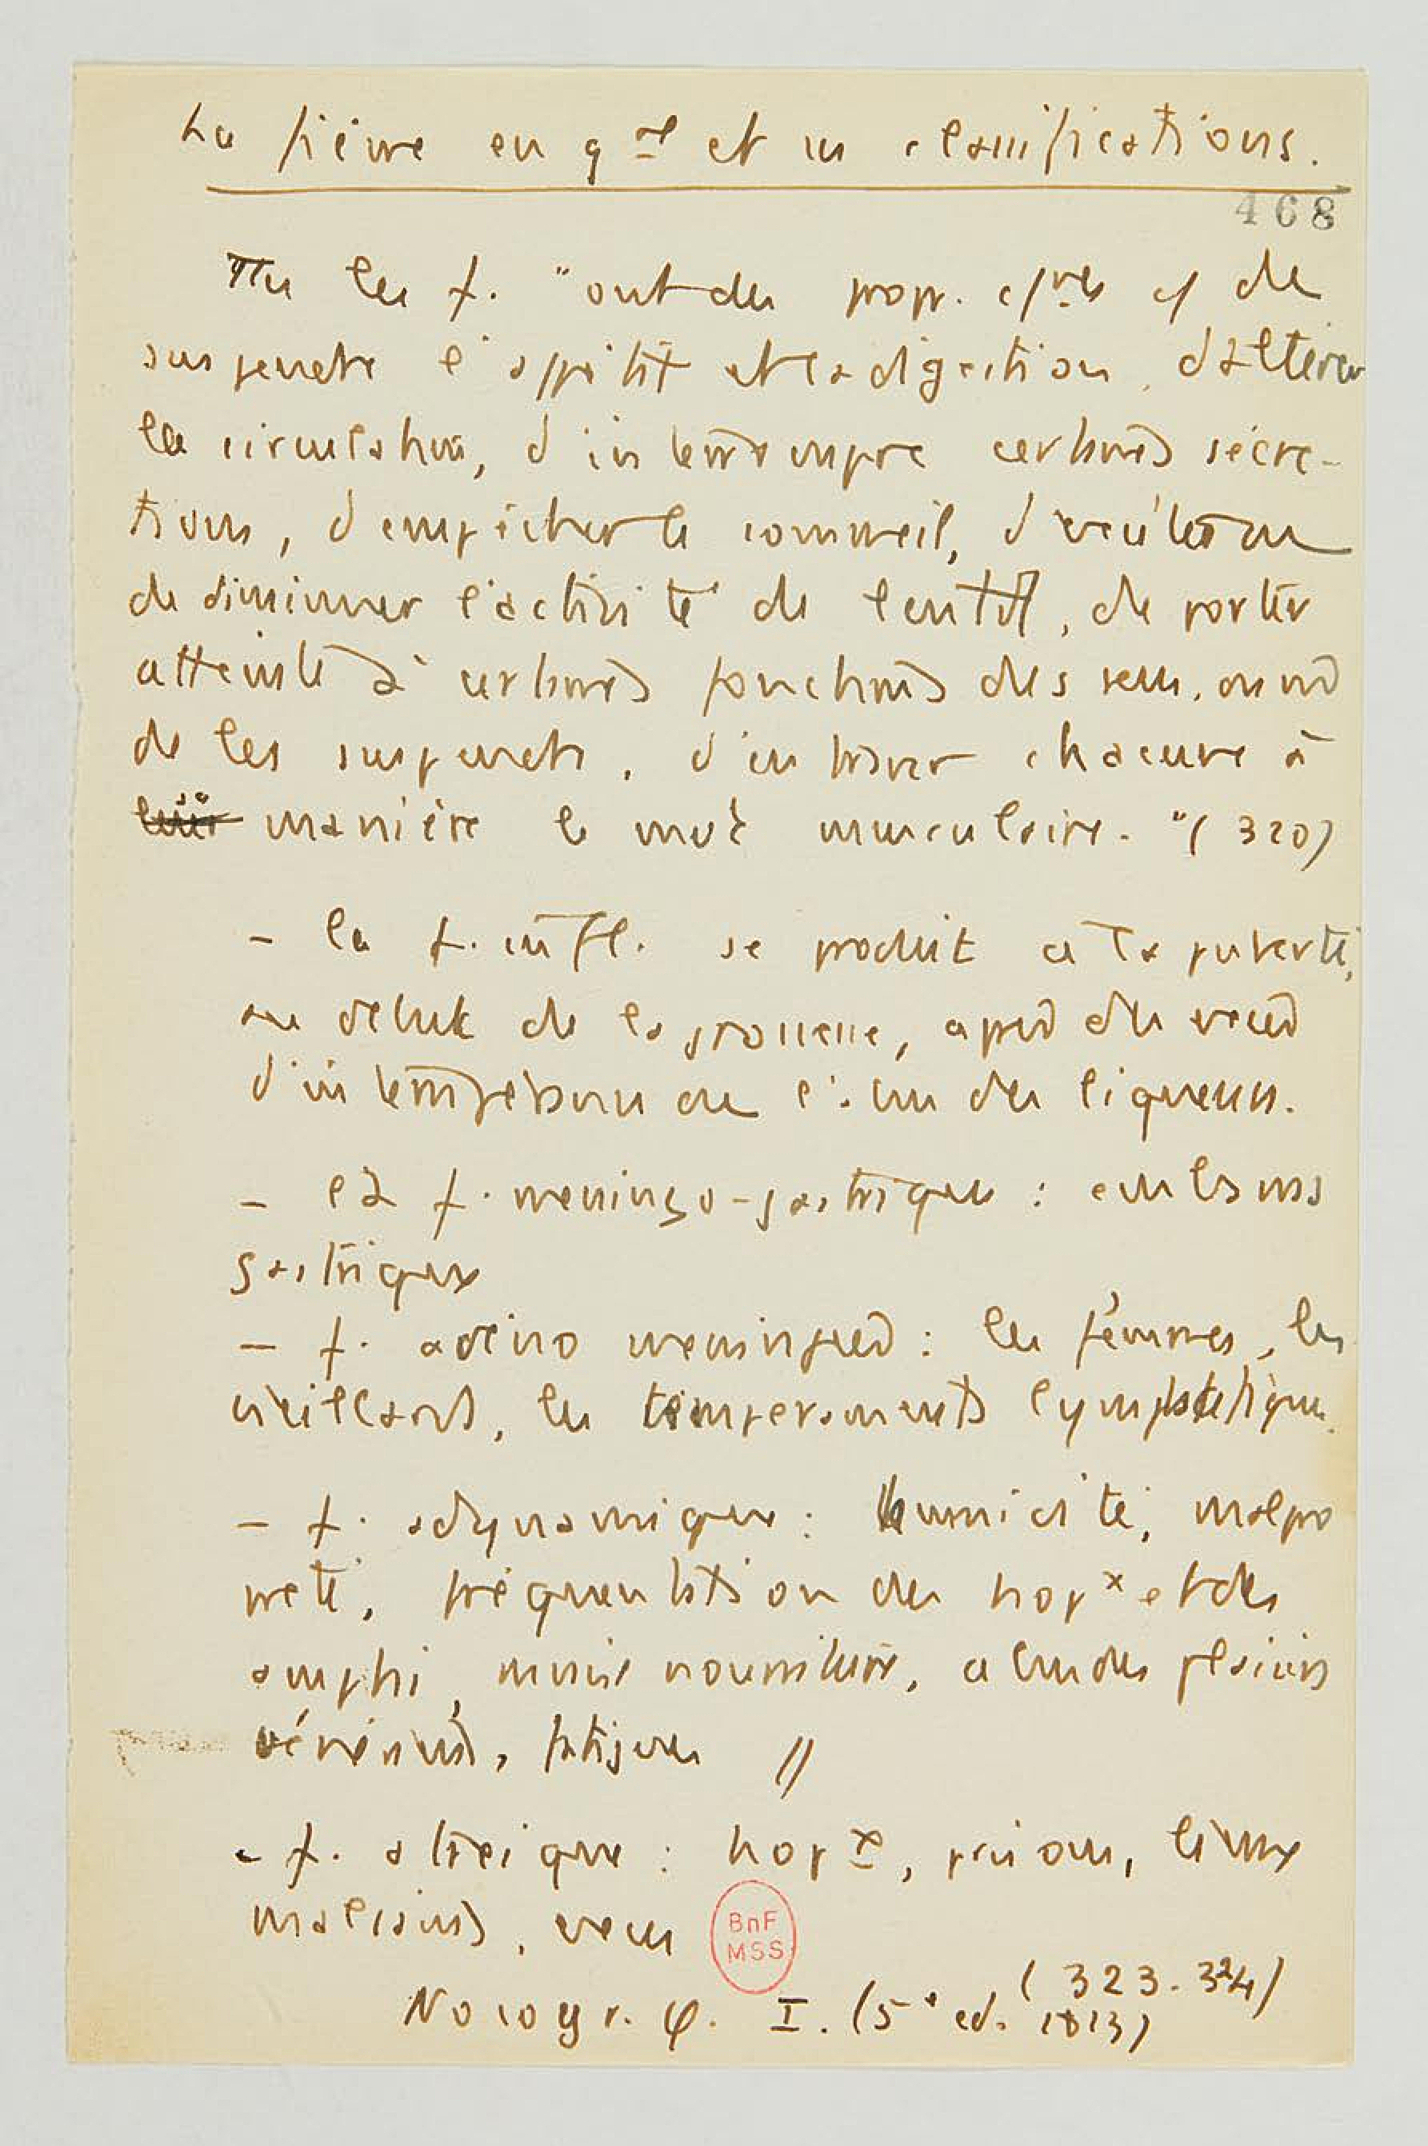 La fièvre en gal et ses classifications.
468
Ttes les f. "ont des propr. cf de
suspendre l'appétit et la digestion, d'altérer
la circulation, d'interrompre certaines sécré-
tions, d'empêcher le sommeil, d'exciter ou
de diminuer l'activité de l'entdt, de porter
atteinte à certaines fonctions des sens, ou md
de les suspendre, d'entraver chacune à
sa manière le mvt musculaire." (320)
- la f. infl. se produit à la puberté,
au début de la grossesse, après des excès
d'intempérance ou l'abus des liqueurs.
- la f. meningo-gastrique : embarras
gastrique
- f. adéno méningée : les femmes, les
vieillards, les tempéraments lymphatiques.
- f. adynamique : humidité, malpro
preté, fréquentation des hopx et des
amphi, mvse nourriture, abus des plaisirs
vénériens, fatigues //
- f. ataxique : hopx, prisons, lieux
malsains, excès
BnF
MSS
(323-324)
Nosogr. φ. I. (5e ed. 1813)